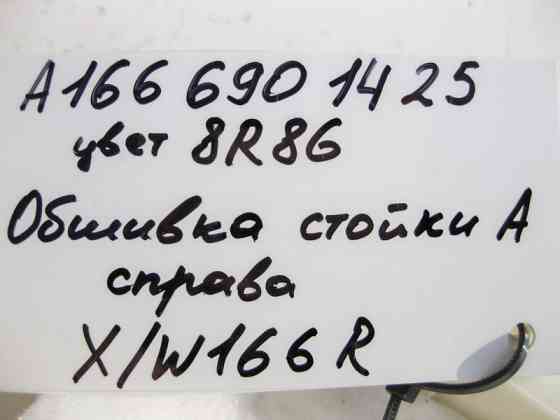 A166 690 14 25
цвет 8R86
Обшивка стойки А
справа
X/W166 R